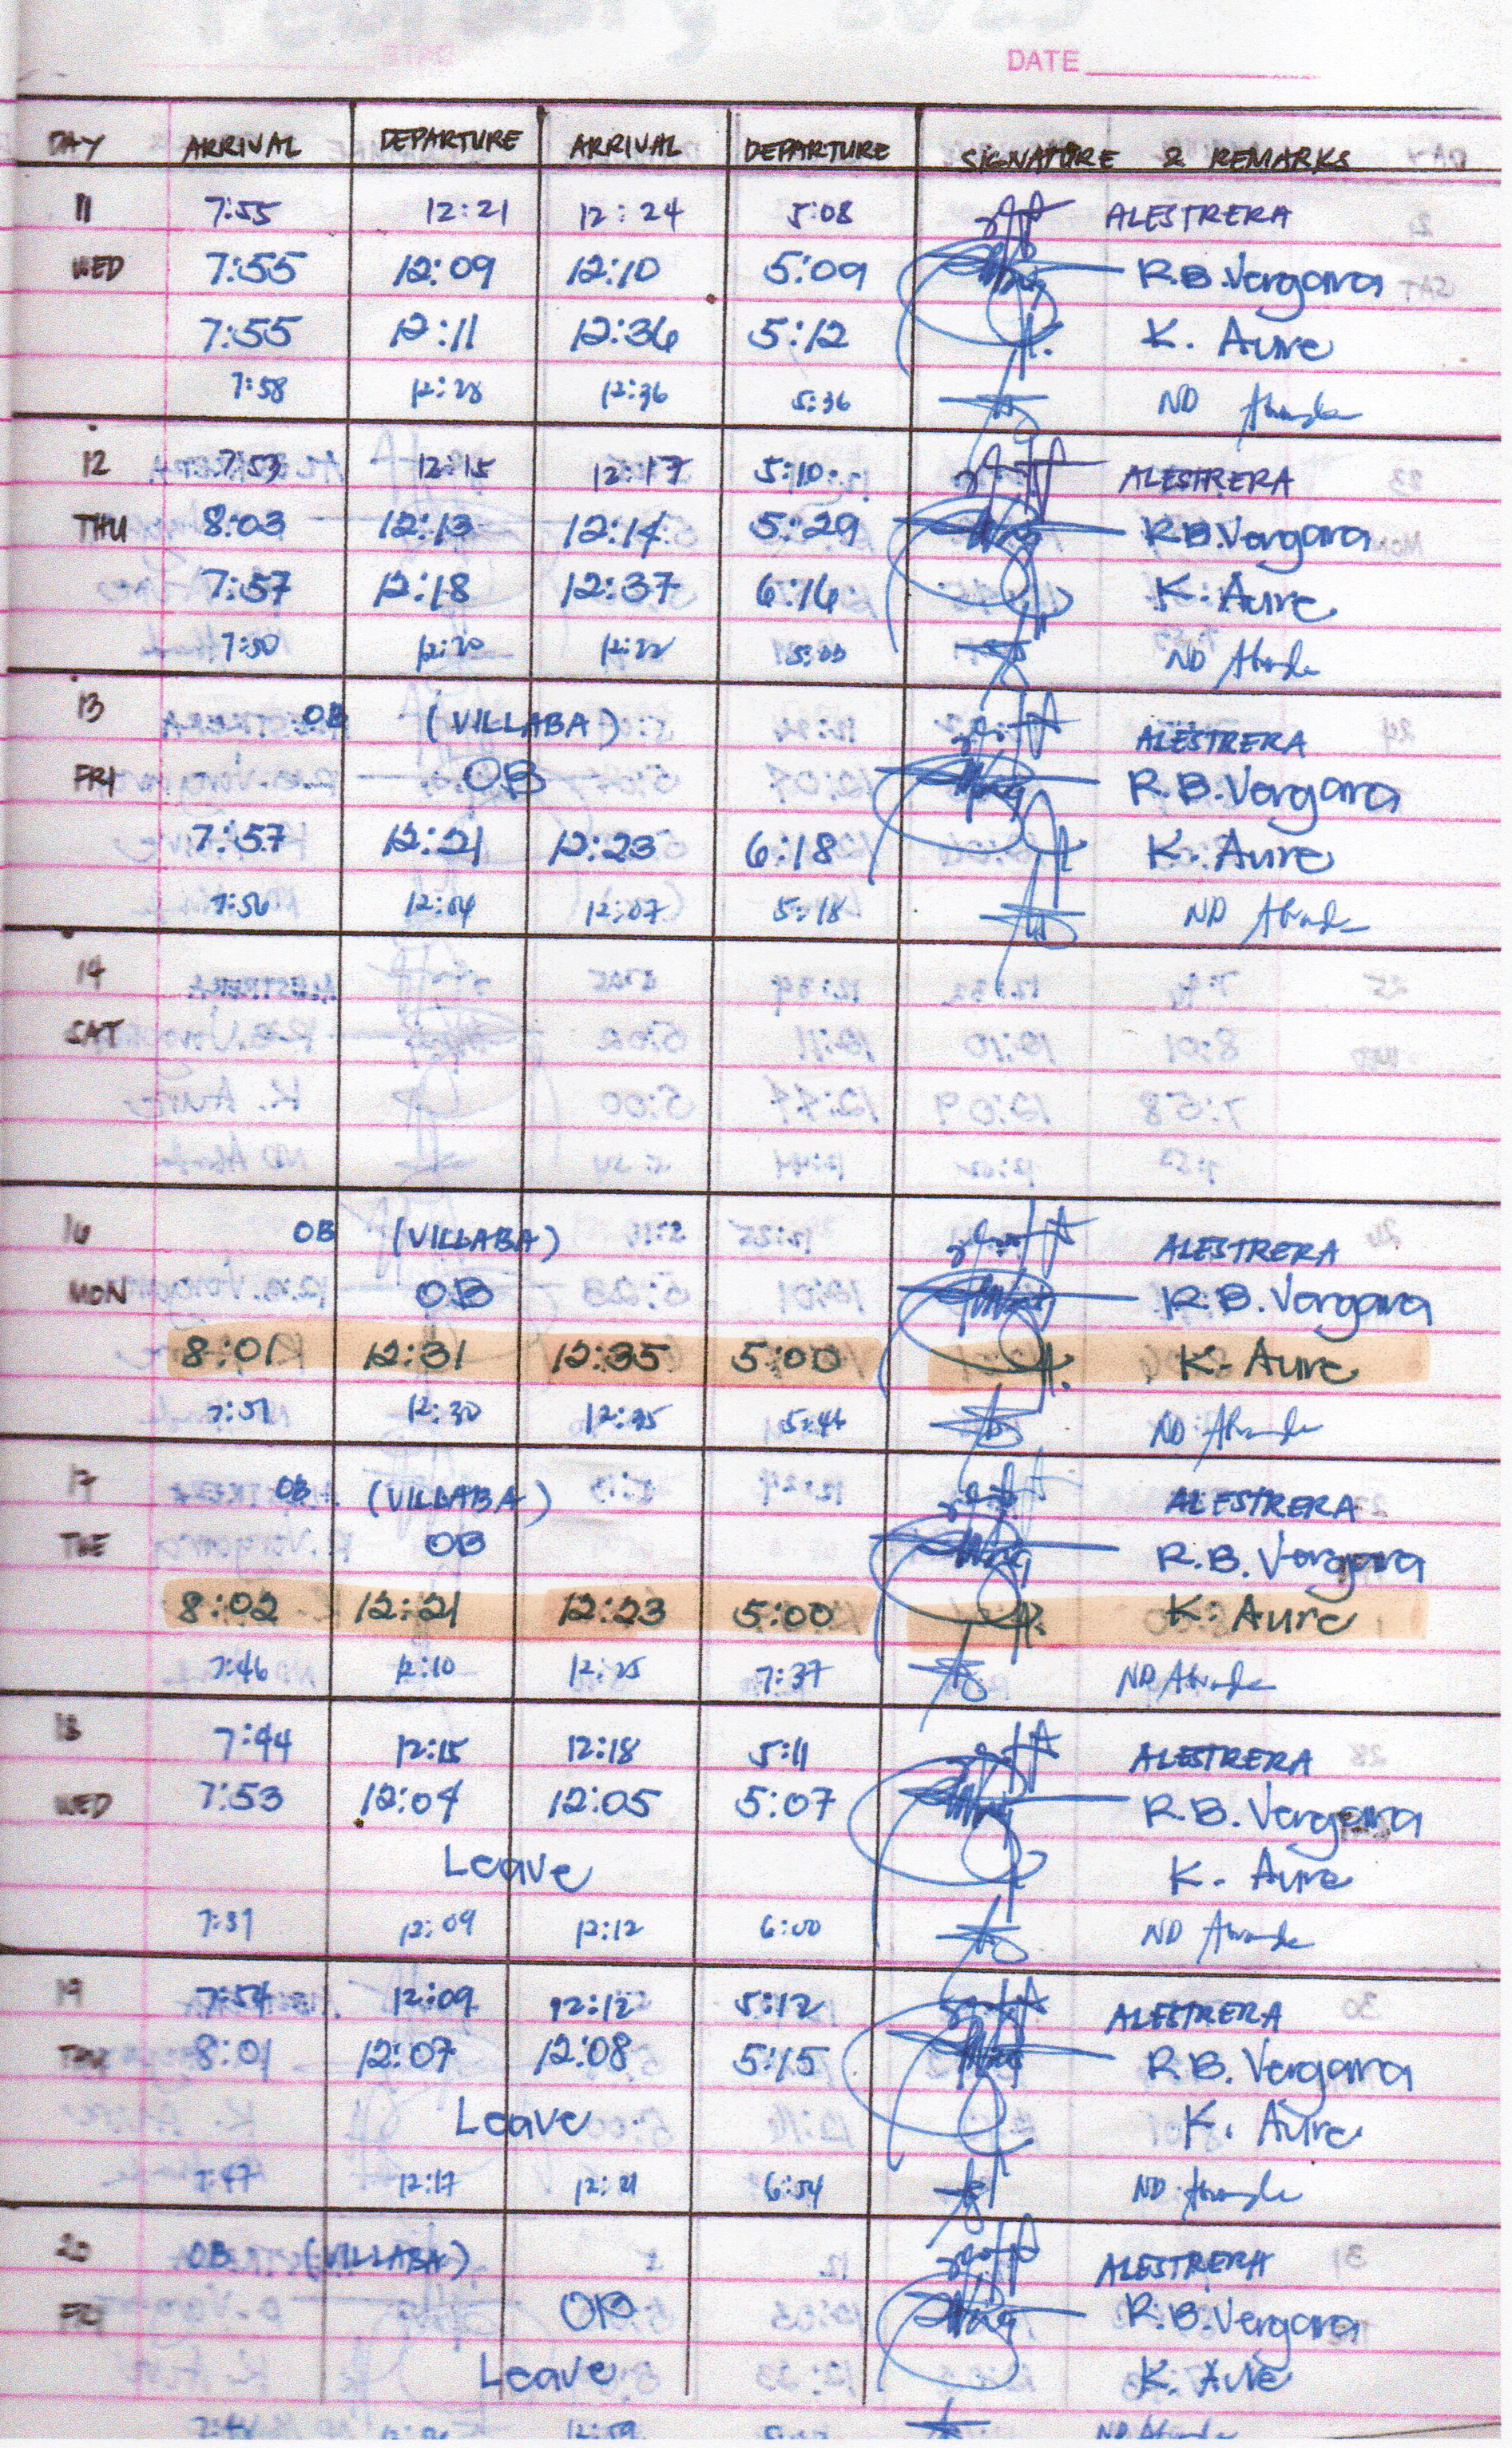 DATE
DAY ARRIVAL DEPARTURE ARRIVAL DEPARTURE SIGNATURE & REMARKS
11 7:55 12:21 12:24 5:08 ALESTRERA
WED 7:55 12:09 12:10 5:09 R.B.Vergara
7:55 12:11 12:36 5:12 K. Aure
7:58 12:28 12:36 5:36 ND
12 7:53 12:15 12:17 5:10 ALESTRERA
THU 8:03 12:13 12:14 5:29 R.B.Vergara
7:57 12:18 12:37 6:16 K. Aure
7:50 12:20 12:22 ND
13 OB (VILLABA) ALESTRERA
FRI OB R.B.Vergara
7:57 12:21 12:23 6:18 K. Aure
7:56 12:04 12:07 5:18 ND
14
SAT
16 OB (VILLABA) ALESTRERA
MON OB R.B.Vergara
8:01 12:31 12:35 5:00 K. Aure
7:51 12:30 12:35 ND
17 OB (VILLABA) ALESTRERA
TUE OB R.B. Vergara
8:02 12:21 12:23 5:00 K. Aure
7:46 12:10 12:25 7:37 ND
18 7:44 12:15 12:18 5:11 ALESTRERA
WED 7:53 12:04 12:05 5:07 R.B. Vergara
Leave K. Aure
12:09 12:12 6:00 ND
19 7:54 12:09 12:12 5:12 ALESTRERA
8:01 12:07 12:08 5:15 R.B. Vergara
Leave K. Aure
7:47 12:17 12:21 6:54 ND
20 OB (VILLABA) ALESTRERA
OB R.B.Vergara
Leave K. Aure
12:59 ND